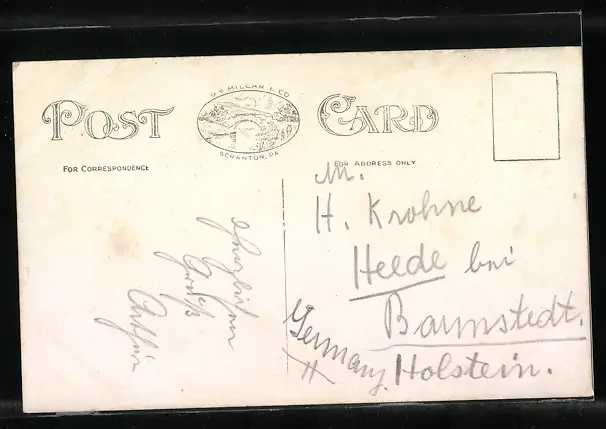 POST CARD
G.V. MILLAR & CO
SCRANTON, PA
FOR CORRESPONDENCE
FOR ADDRESS ONLY
M.
H. Krohne
Heede bei
Barmstedt.
Holstein.
Germany
Herzlichen
Gruß
Arthur